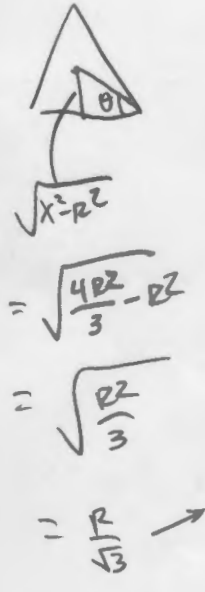 θ
√(x²-R²)
= √(4R²/3 - R²)
= √(R²/3)
= R/√3 →